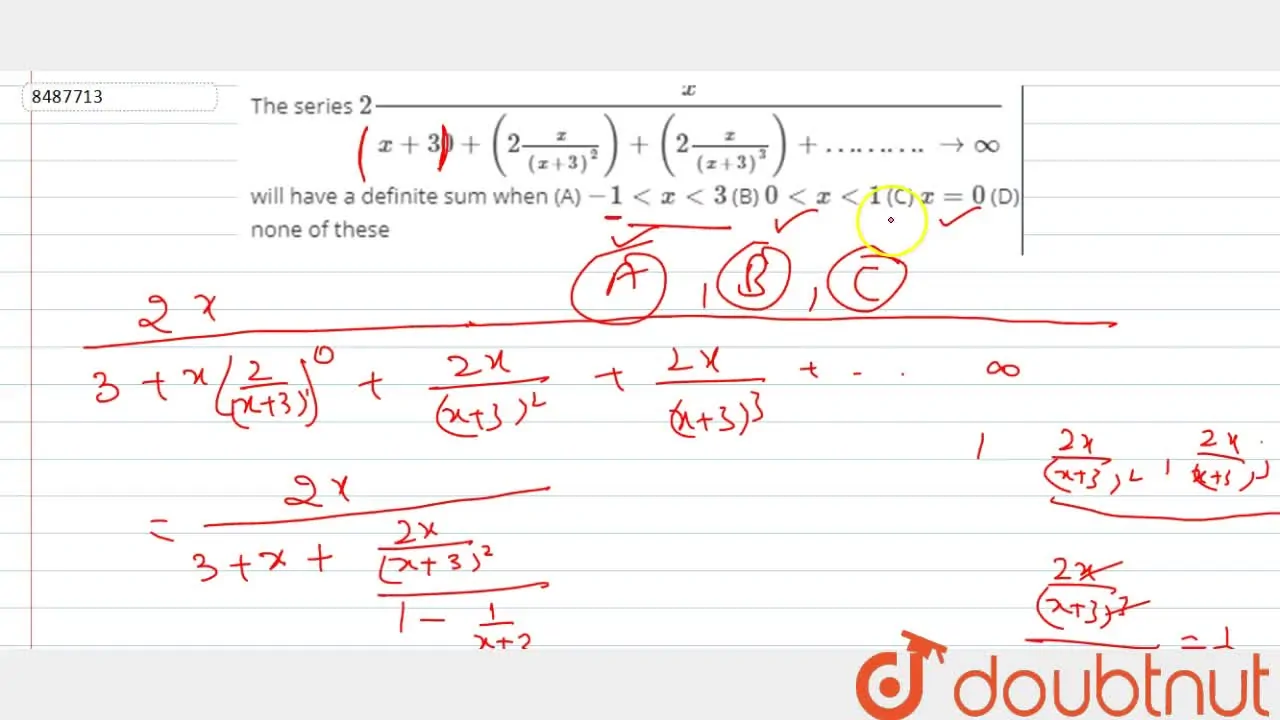 8487713
The series 2 x / (x + 30 + (2 x/(x+3)^2) + (2 x/(x+3)^3) + ………. → ∞
will have a definite sum when (A) −1 < x < 3 (B) 0 < x < 1 (C) x = 0 (D)
none of these
A , B , C
2x
3 + x (2/(x+3))^0 + 2x/(x+3)^2 + 2x/(x+3)^3 + - . . ∞
1 2x/(x+3)^2 , 2x/(x+3)^3
= 2x
3 + x + 2x/(x+3)^2
1 − 1/
2x/(x+3)^3
= 1
doubtnut